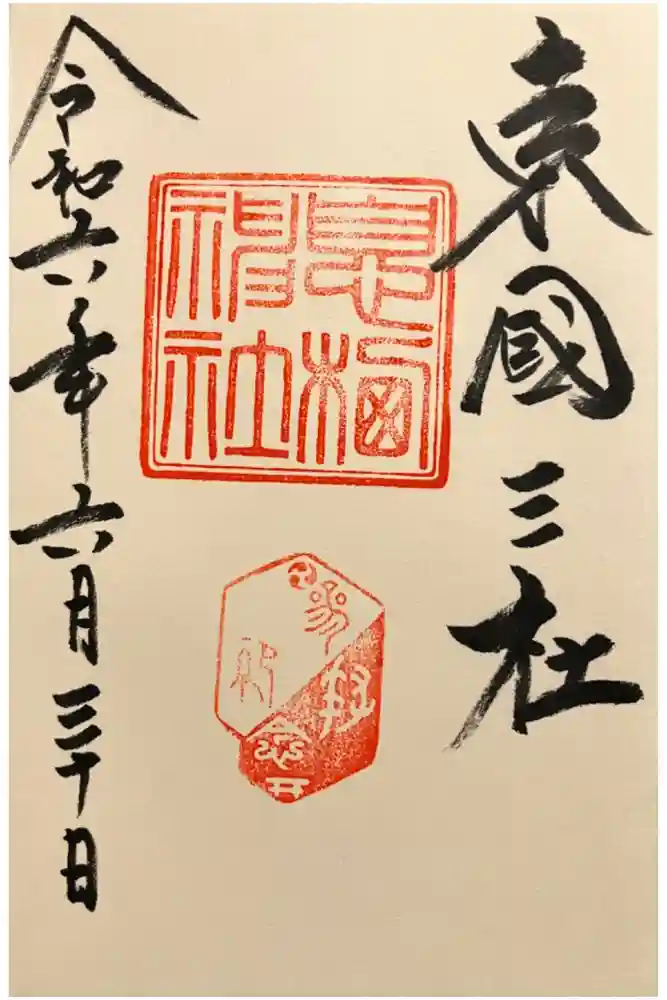 東國三社
息栖
神社
令和六年六月三十日